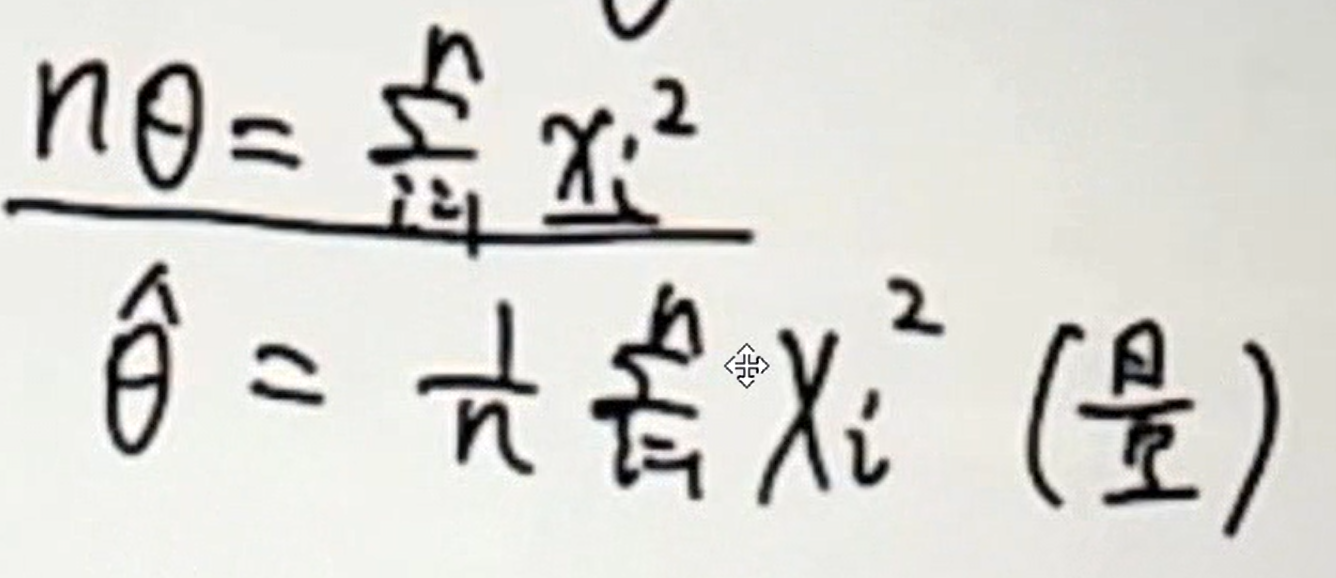 nθ = ∑_{i=1}^{n} x_i²
θ̂ = 1/n ∑_{i=1}^{n} X_i² (量)